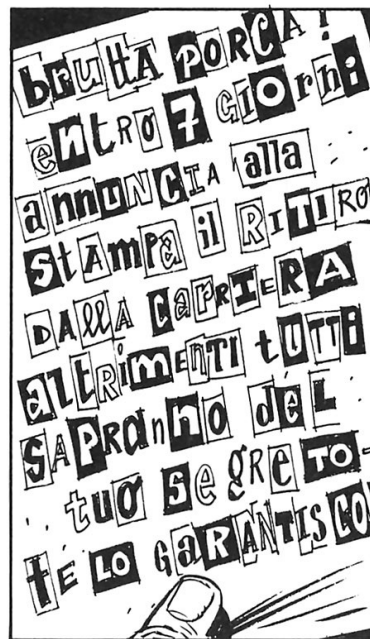 bruttA PORCA!
entRO 7 GIOrni
annUNCIA alla
StAmpa il RITIRO
DALLA CARRIERA
alTRimENTI tUTTi
SAPRAnnO del
tuo SeGRETO-
tE LO GARANTISCO!